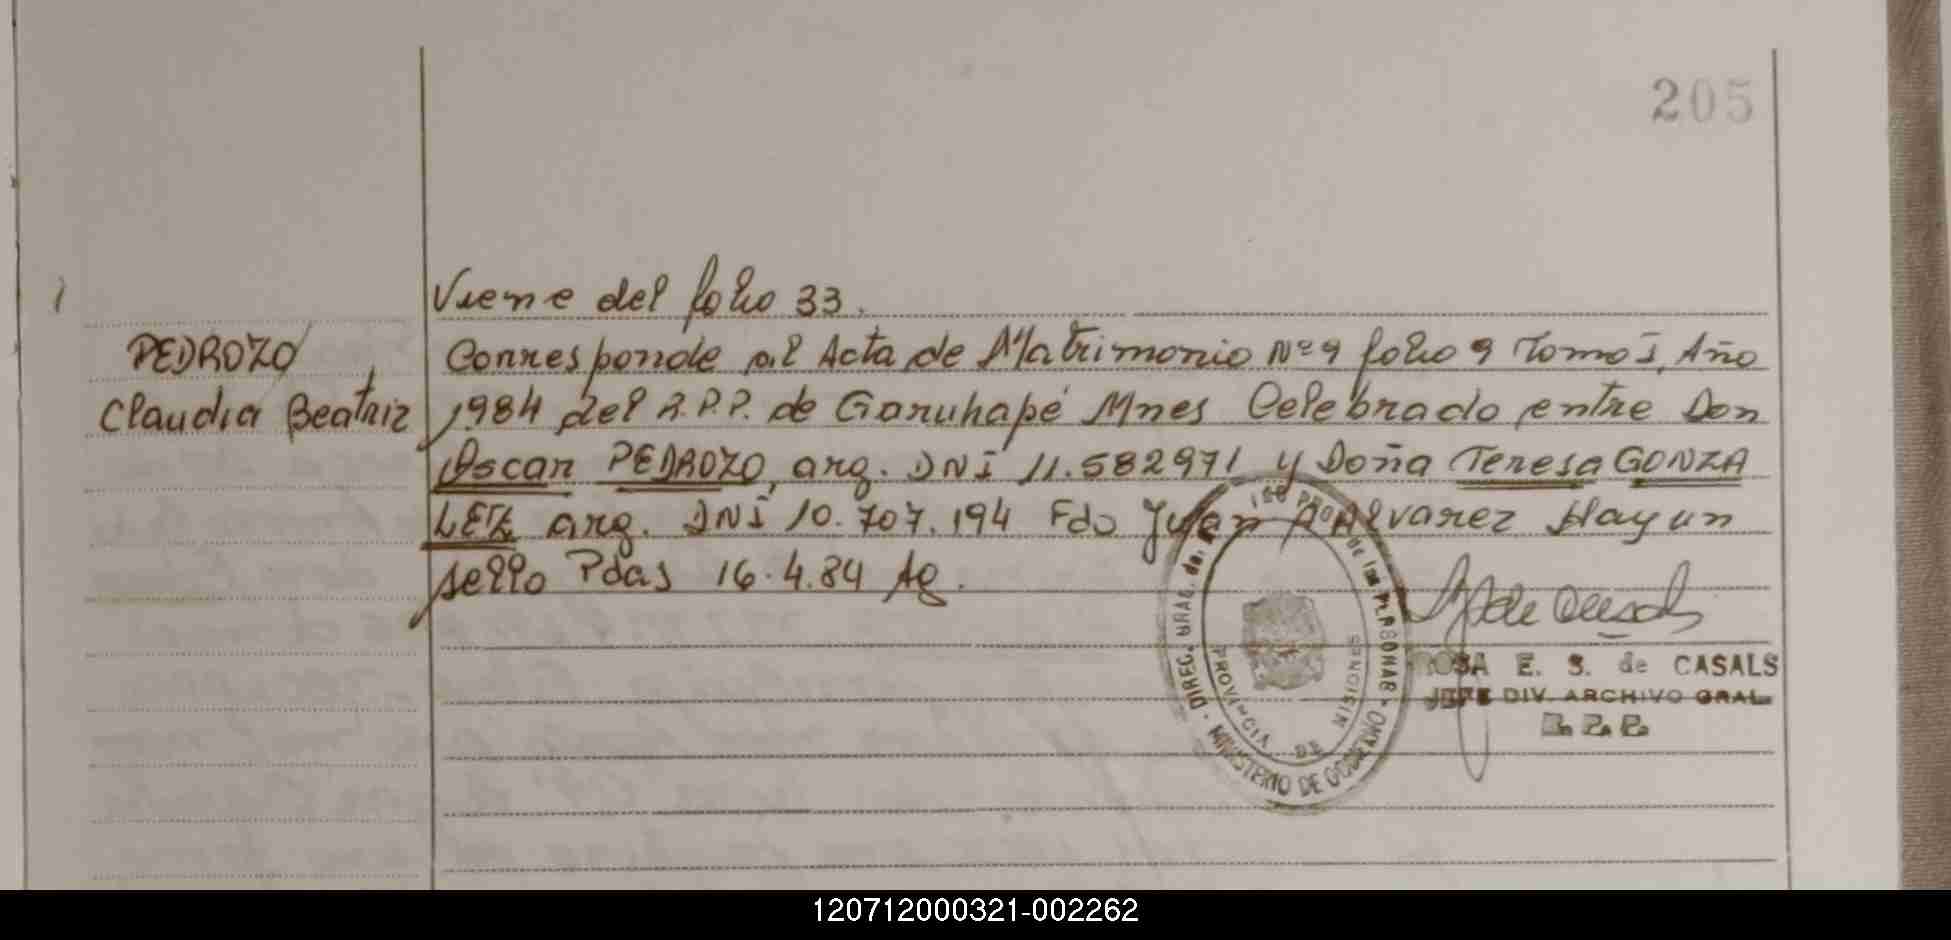 205
Viene del folio 33.
PEDROZO
Claudia Beatriz
Corresponde al Acta de Matrimonio Nº 9 folio 9 Tomo I, Año
1984 del R.P.P. de Garuhapé Mnes Celebrado entre Don
Oscar PEDROZO, arg. DNI 11.582971 y Doña Teresa GONZA
LEZ arg. DNI 10.707.194 Fdo Julan Aº Alvarez Hay un
sello Pdas 16.4.84 Ag.
DIREC. GRAL. del REG. PRO. DE las PERSONAS
MINISTERIO DE GOBIERNO
PROVINCIA DE MISIONES
ROSA E. S. de CASALS
JEFE DIV. ARCHIVO GRAL
120712000321-002262